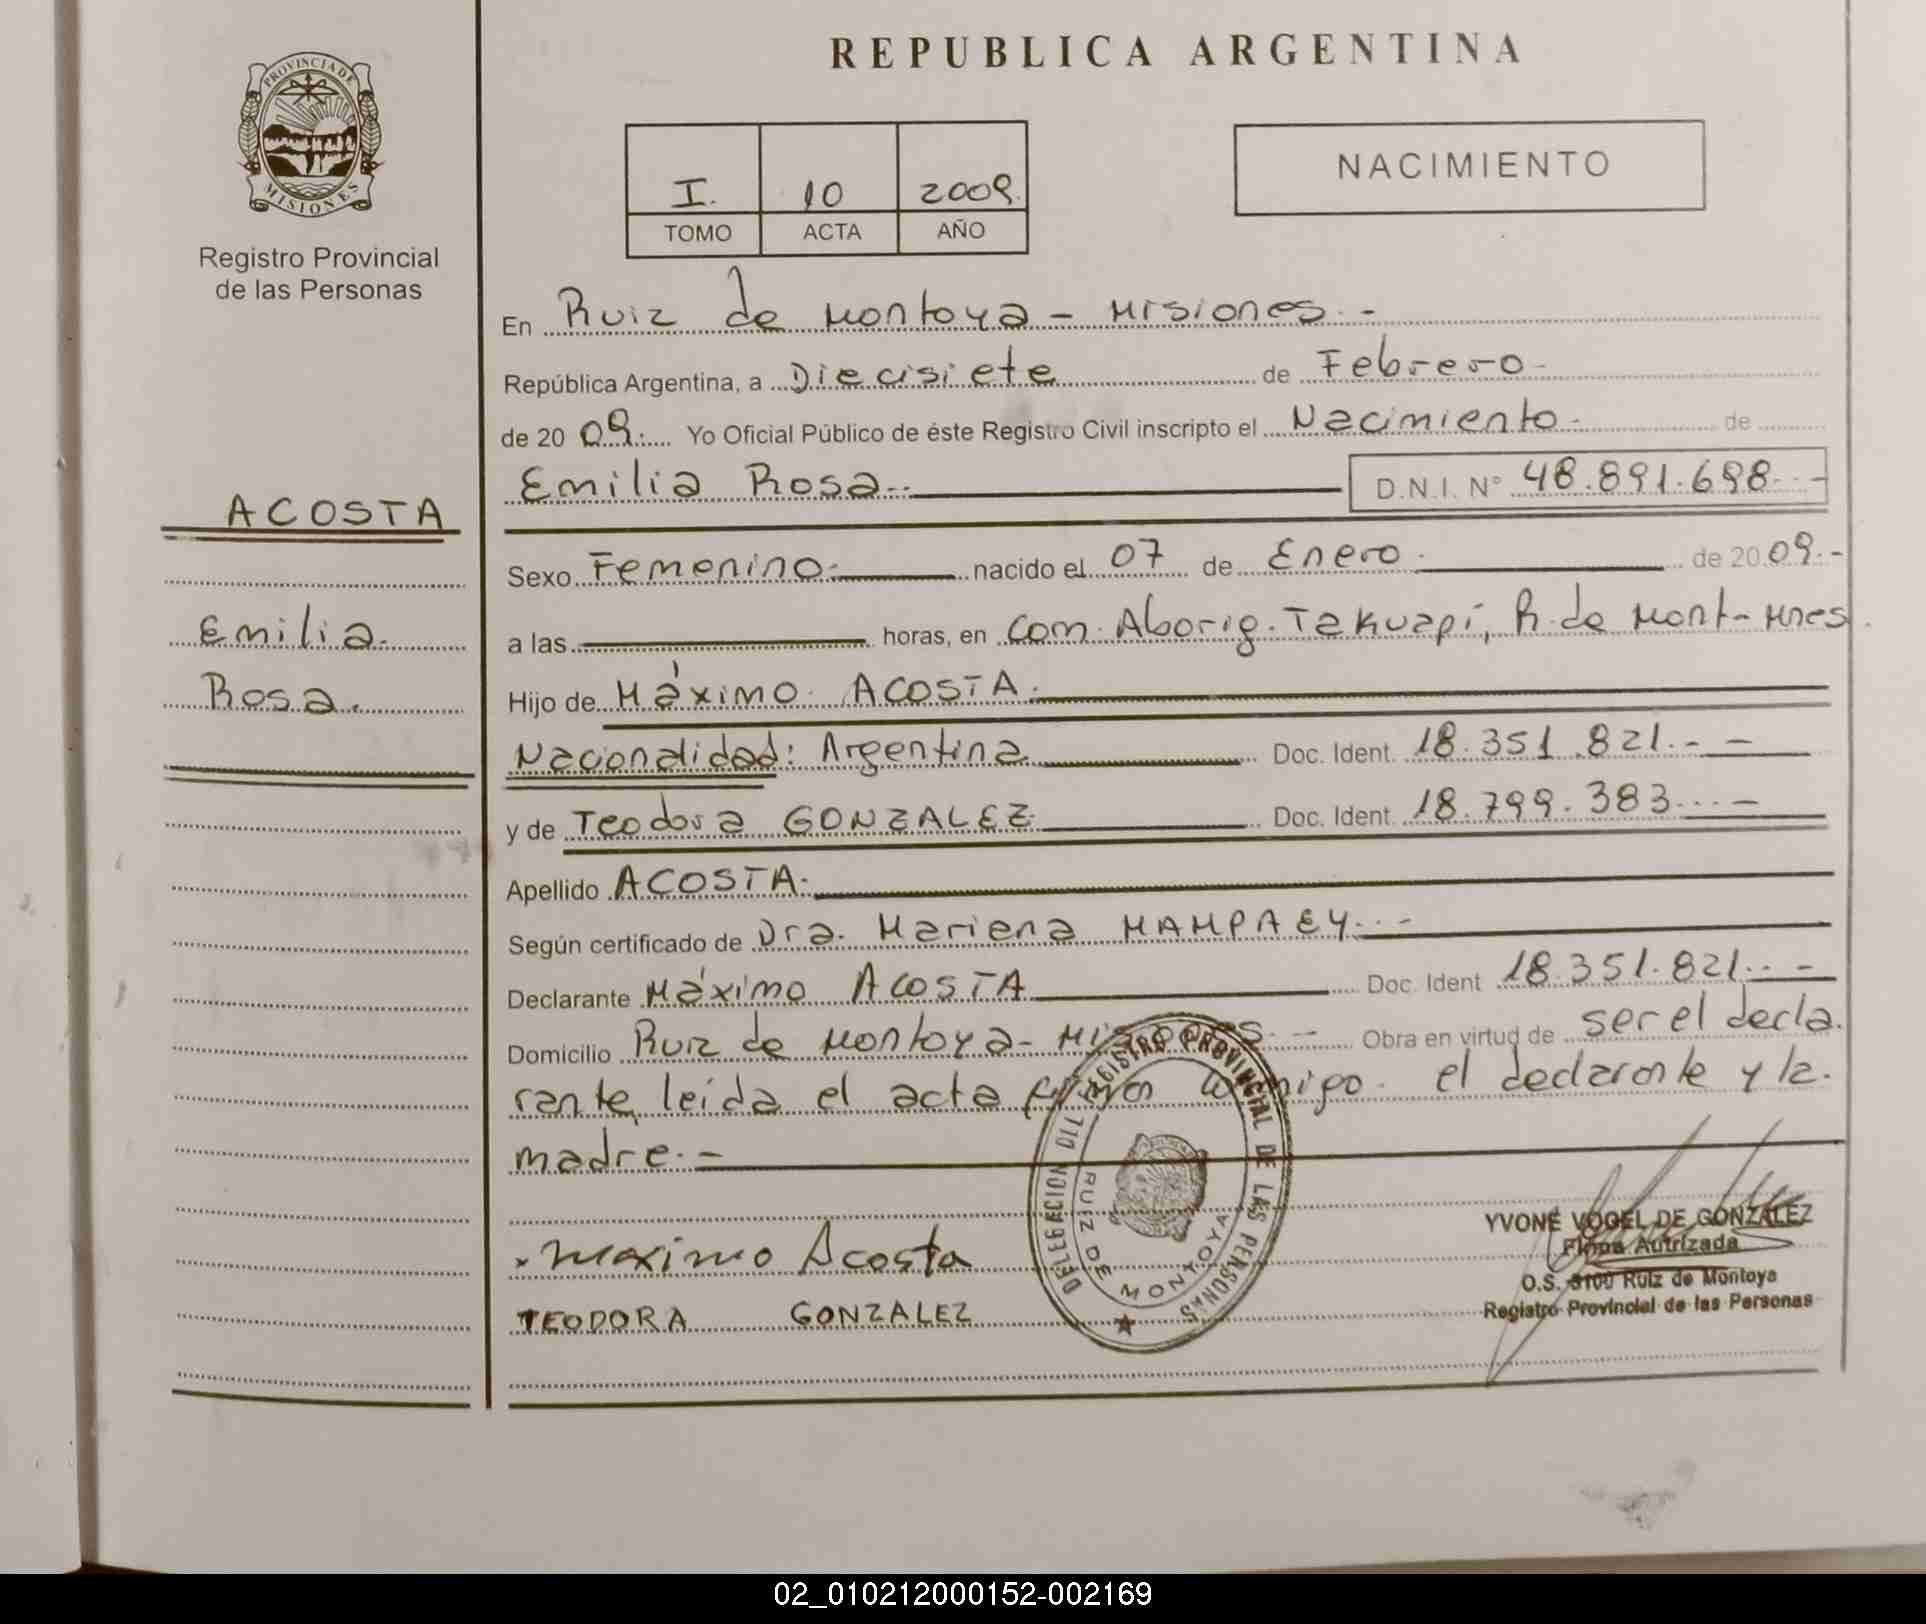 PROVINCIA DE
MISIONES
Registro Provincial
de las Personas
ACOSTA
Emilia
Rosa.
REPUBLICA ARGENTINA
I. 10 2009.
TOMO ACTA AÑO
NACIMIENTO
En Ruiz de Montoya - Misiones. -
República Argentina, a Diecisiete de Febrero -
de 20 09. Yo Oficial Público de éste Registro Civil inscripto el Nacimiento - de
Emilia Rosa.- D.N.I. N° 48.891.698 -
Sexo Femenino.- nacido el 07 de Enero. de 20 09.-
a las horas, en Com. Aborig. Takuapí, R. de Mont- Mnes.
Hijo de Máximo. ACOSTA.
Nacionalidad: Argentina Doc. Ident. 18.351.821.- -
y de Teodora GONZALEZ Doc. Ident. 18.799.383. -
Apellido ACOSTA.
Según certificado de Dra. Mariena MAMPAEY.. -
Declarante Máximo ACOSTA Doc. Ident 18.351.821. -
Domicilio Ruiz de Montoya - Misiones. - Obra en virtud de ser el decla.
rante, leída el acta conmigo. el declarante y la.
madre.-
REGISTRO PROVINCIAL DE LAS PERSONAS
DELEGACION 710
RUIZ DE MONTOYA
Maximo Acosta
TEODORA GONZALEZ
YVONE VOGEL DE GONZALEZ
Firma Autrizada
O.S. 3100 Ruiz de Montoya
Registro Provincial de las Personas
02_010212000152-002169